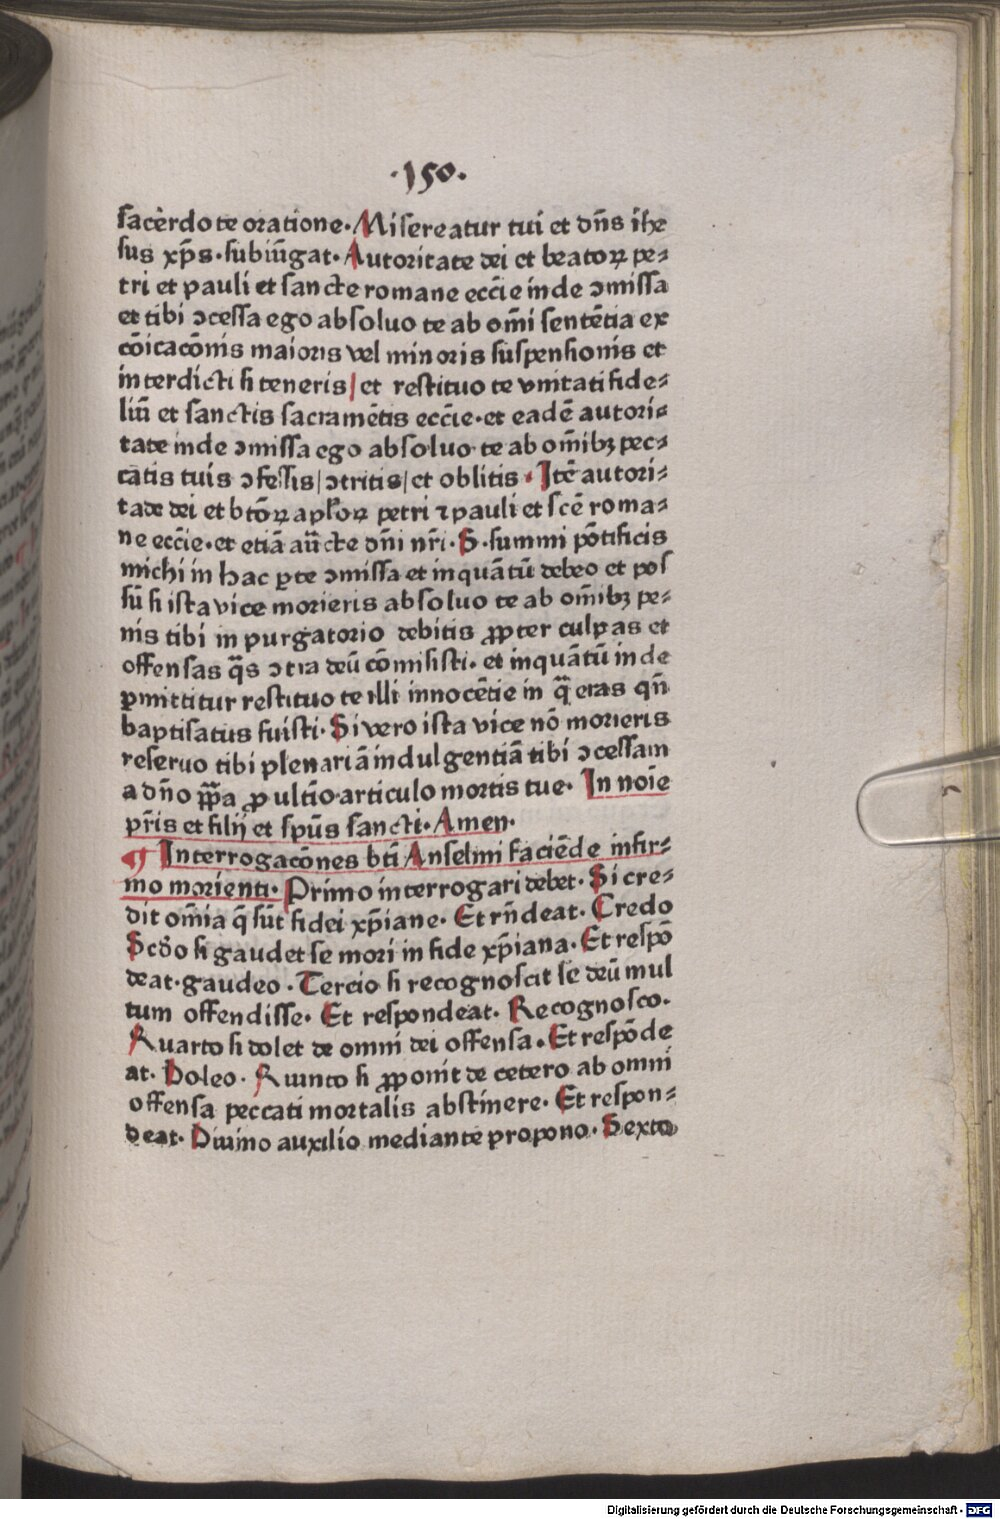 ·150·
sacerdote oratione· Misereatur tui et dn̄s ihe
sus xp̄s·subiūgat· Autoritate dei et beatoꝝ pe⸗
tri et pauli et sancte romane ecc̄ie inde ꝯmissa
et tibi ꝯcessa ego absoluo te ab om̄i sentētia ex
cōicacōnis maioris vel minoris suspensionis et
interdicti si teneris/ et restituo te vnitati fide⸗
liū et sanctis sacramētis ecc̄ie·et eadē autori⸗
tate inde ꝯmissa ego absoluo te ab om̄ibꝫ pec⸗
catis tuis ꝯfessis/ꝯtritis/et oblitis · Itē autori⸗
tade dei et btōꝝ apl̄oꝝ petri ⁊ pauli et scē roma⸗
ne ecc̄ie·et etiā aūcte dn̄i nr̄i·S·summi pōtificis
michi in hac ꝑte ꝯmissa et inquātū debeo et pos
sū si ista vice morieris absoluo te ab om̄ibꝫ pe⸗
nis tibi in purgatorio debitis ꝓpter culpas et
offensas q̄s ꝯtra deū cōmisisti· et inquātū inde
ꝑmittitur restituo te illi innocētie in q̄ eras qn̄
baptisatus fuisti· Si vero ista vice nō morieris
reseruo tibi plenariā indulgentiā tibi ꝯcessam
a dn̄o pp̄a ꝓ ultio articulo mortis tue· In noīe
pr̄is et filij et sp̄us sancti· Amen·
¶ Interrogacōnes bt̄i Anselmi faciēde infir⸗
mo morienti· Primo interrogari debet· Si cre⸗
dit om̄ia q̄ sūt fidei xp̄iane· Et rn̄deat· Credo
Scdo si gaudet se mori in fide xp̄iana· Et respō
deat·gaudeo · Tercio si recognoscit se deū mul
tum offendisse· Et respondeat· Recognosco·
Quarto si dolet de omni dei offensa· Et respōde
at· Doleo· Quinto si ꝓponit de cetero ab omni
offensa peccati mortalis abstinere· Et respon⸗
deat· Diuino auxilio mediante propono· Sexto
Digitalisierung gefördert durch die Deutsche Forschungsgemeinschaft - DFG